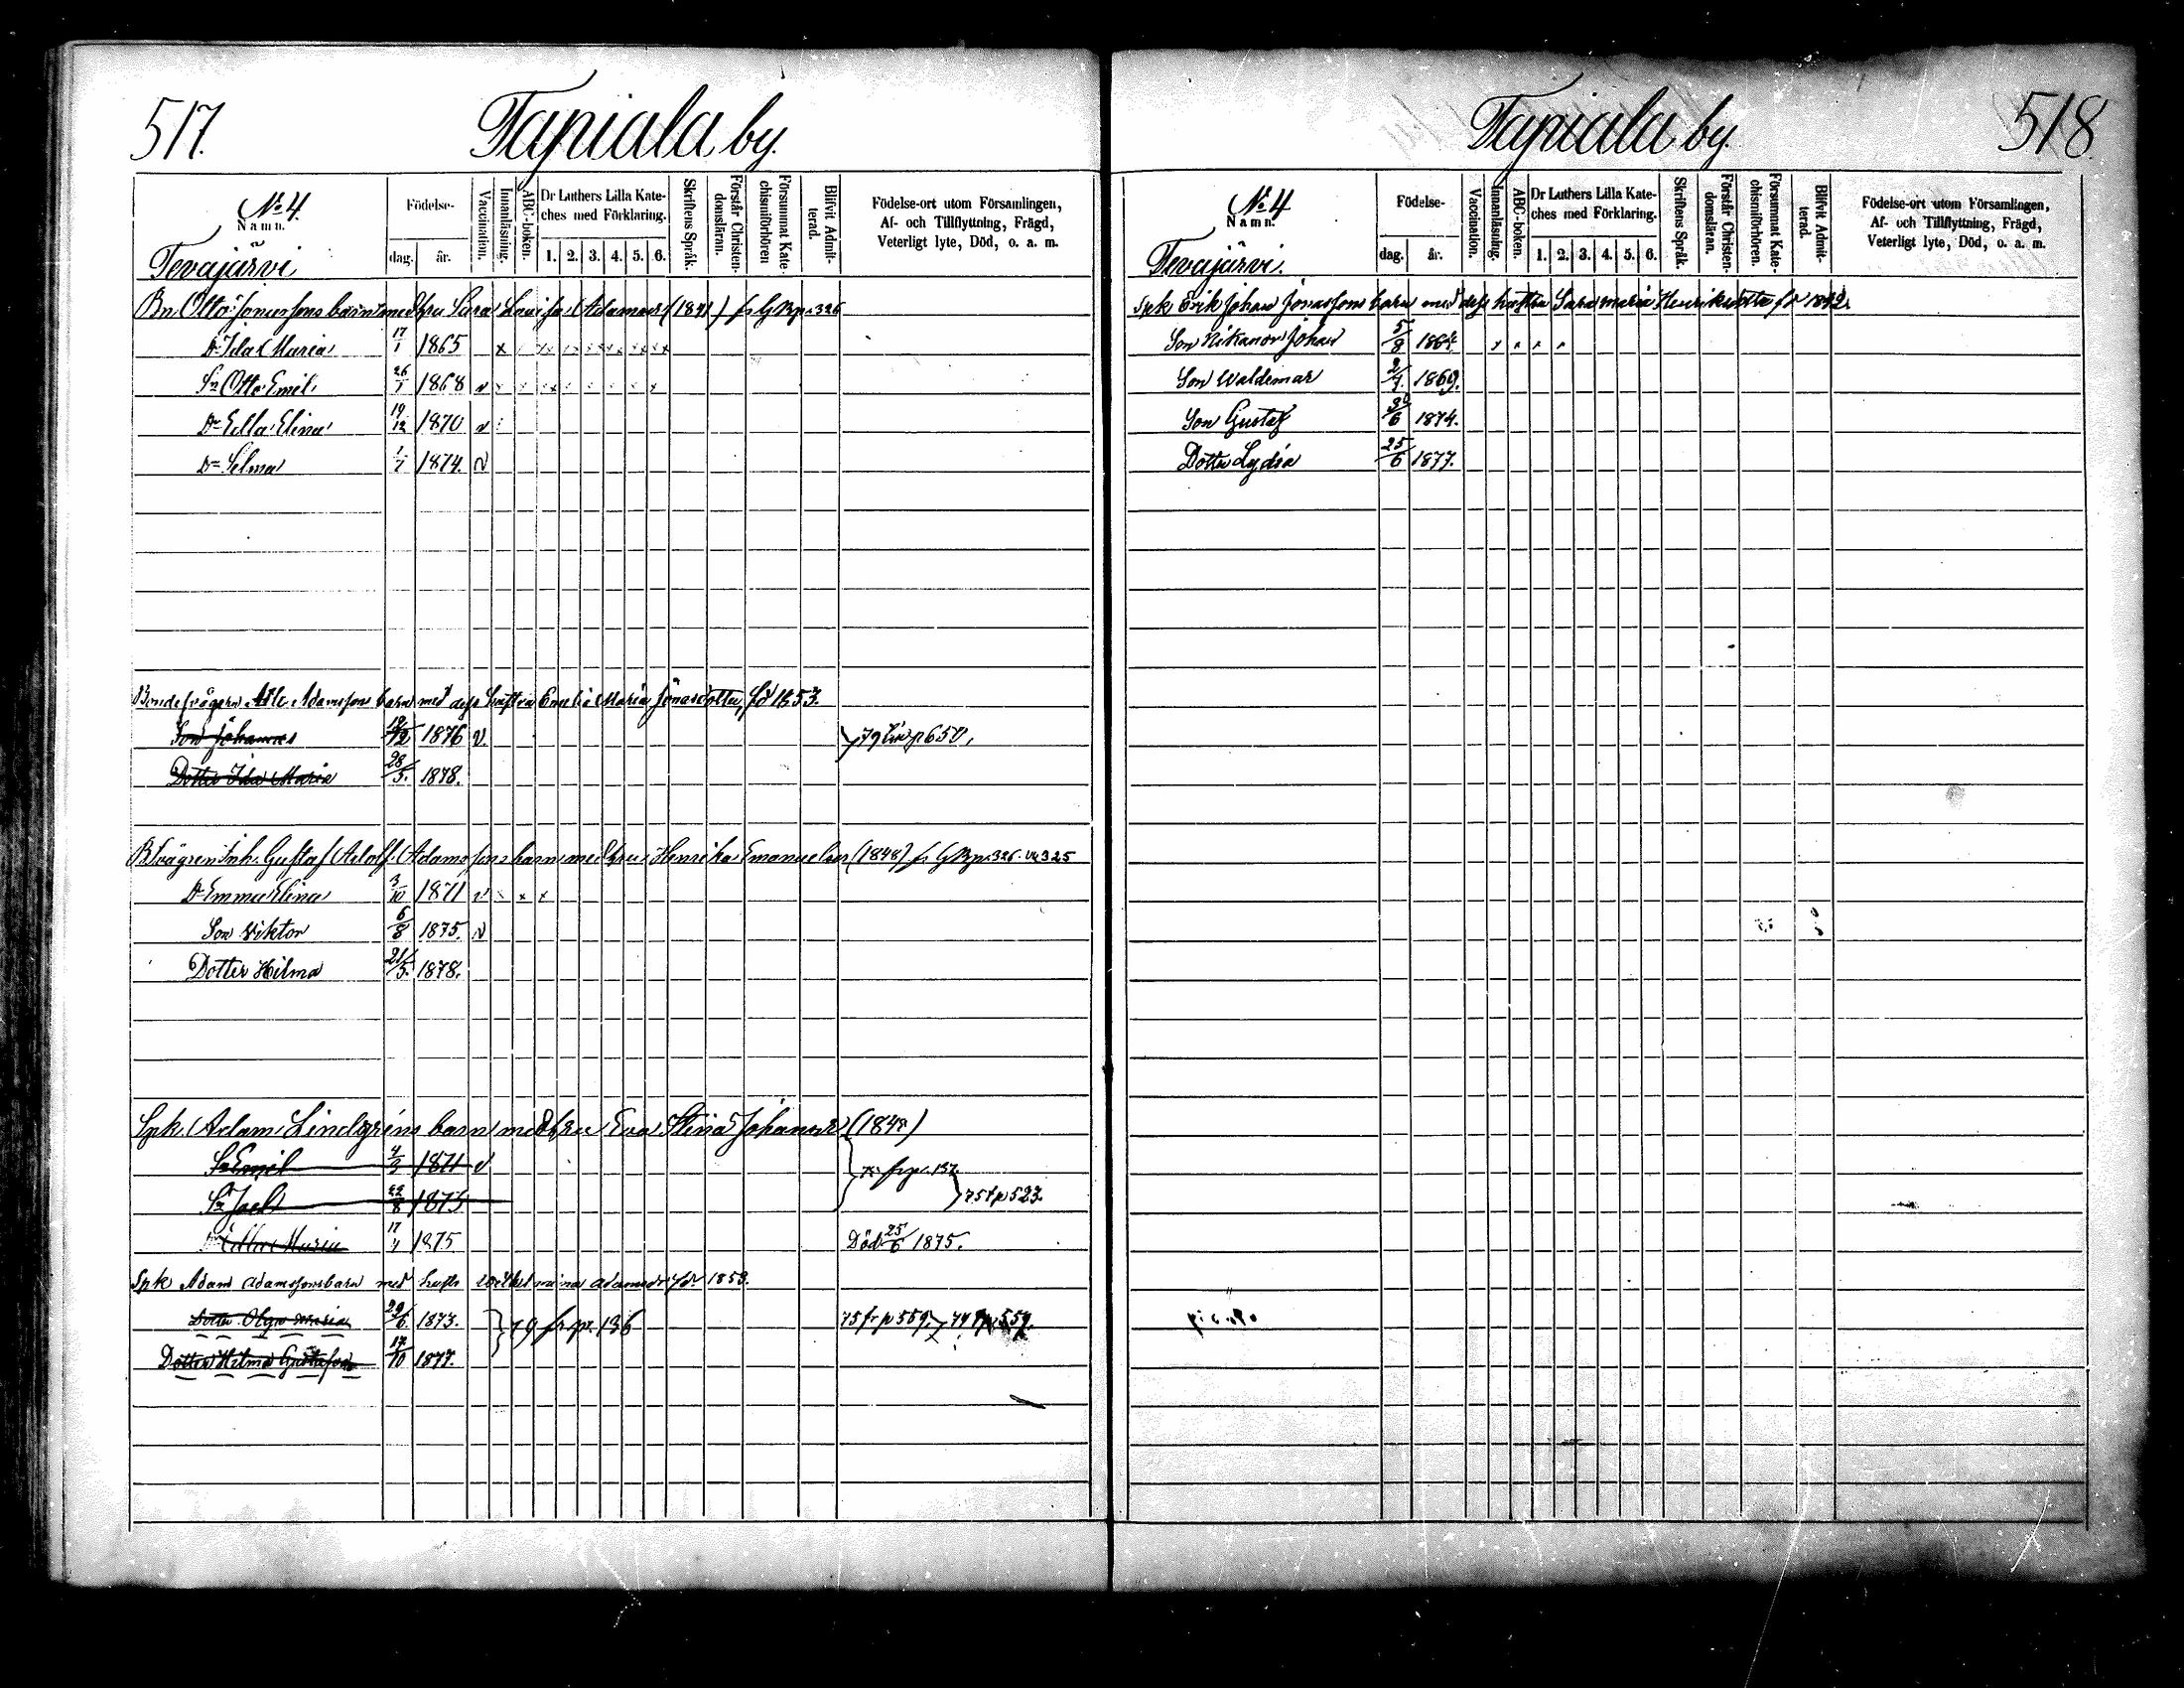 517.
Tapiala by.
No 4.
Namn.
Födelse-
dag.
år.
Vaccination.
Innanläsning.
ABC-boken.
Dr Luthers Lilla Kate-
ches med Förklaring.
1. 2. 3. 4. 5. 6.
Skriftens Språk.
Förstår Christen-
domsläran.
Försummat Kate-
chismiförhören
Blifvit Admit-
terad.
Födelse-ort utom Församlingen,
Af- och Tillflyttning, Frägd,
Veterligt lyte, Död, o. a. m.
Tevajärvi
Bn. Otto Jonassons barn med hru Sara Lovisa Adamsdr (1841) fr G Bp. 326
Dr Ida Maria 17/1 1865 x
Sn Otto Emil 26/1 1868 v
Dr Edla Elina 19/12 1870 v
Dr Selma 1/7 1874. v
Adamsson barn med dess hustru Emelia Maria Jonasdotter, fd 1853.
Son Johannes 19/12 1876 v. 79 p 650,
Dotter Ida Maria 28/5. 1878.
Inh. Gustaf Adolf Adamssons barn med hru Henrika Emanuelsdr (1848) fr G Bp. 326. 325
Dr Emma Elina 3/10 1871 v x x
Son Viktor 6/8 1875. v
Dotter Hilma 21/5. 1878.
Spk. Adam Lindgréns barn med hru Eva Stina Johansdr (1848)
Sn Emil 4/3 1871 v fr p. 137
Sn Joel 22/8 1873 75 t p 523.
Dr Edla Maria 17/4 1875 Död 25/6 1875.
Spk Adam Adamssons barn med hustr Wilhelmina Adamsdr fdr 1853.
Dotter Olga Maria 29/6. 1873. 79 fr p. 136 75 fr p 559. 79 p 559.
Dotter Hilma Gustafva 17/10 1877.
Tapiala by.
518.
No 4
Namn.
Födelse-
dag.
år.
Vaccination.
Innanläsning.
ABC-boken.
Dr Luthers Lilla Kate-
ches med Förklaring.
1. 2. 3. 4. 5. 6.
Skriftens Språk.
Förstår Christen-
domsläran.
Försummat Kate-
chismiförhören.
Blifvit Admit-
terad.
Födelse-ort utom Församlingen,
Af- och Tillflyttning, Frägd,
Veterligt lyte, Död, o. a. m.
Tevajärvi.
Spk Erik Johan Jonassons barn med dess hustru Sara Maria Henriksdotter fd 1842.
Son Nikanor Johan 5/8 1864.
Son Waldemar 2/7. 1869.
Son Gustaf 30/6 1874.
Dotter Lydia 25/6 1877.